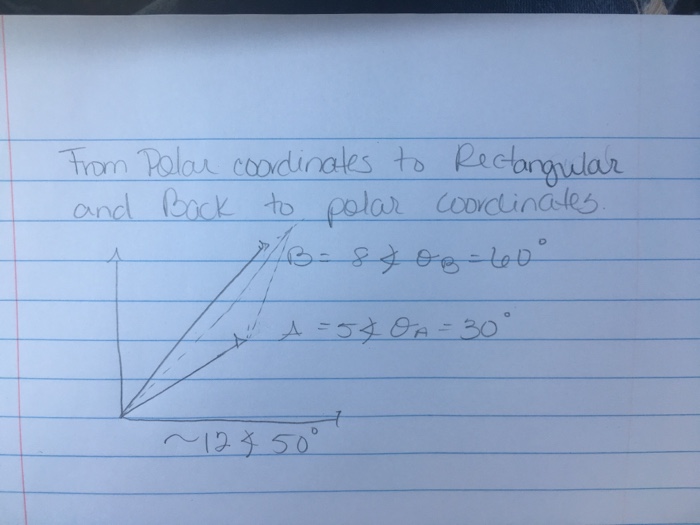 From Polar coordinates to Rectangular
and Back to polar coordinates.
B = 8 ∡ θB = 60°
A = 5 ∡ θA = 30°
~12 ∡ 50°